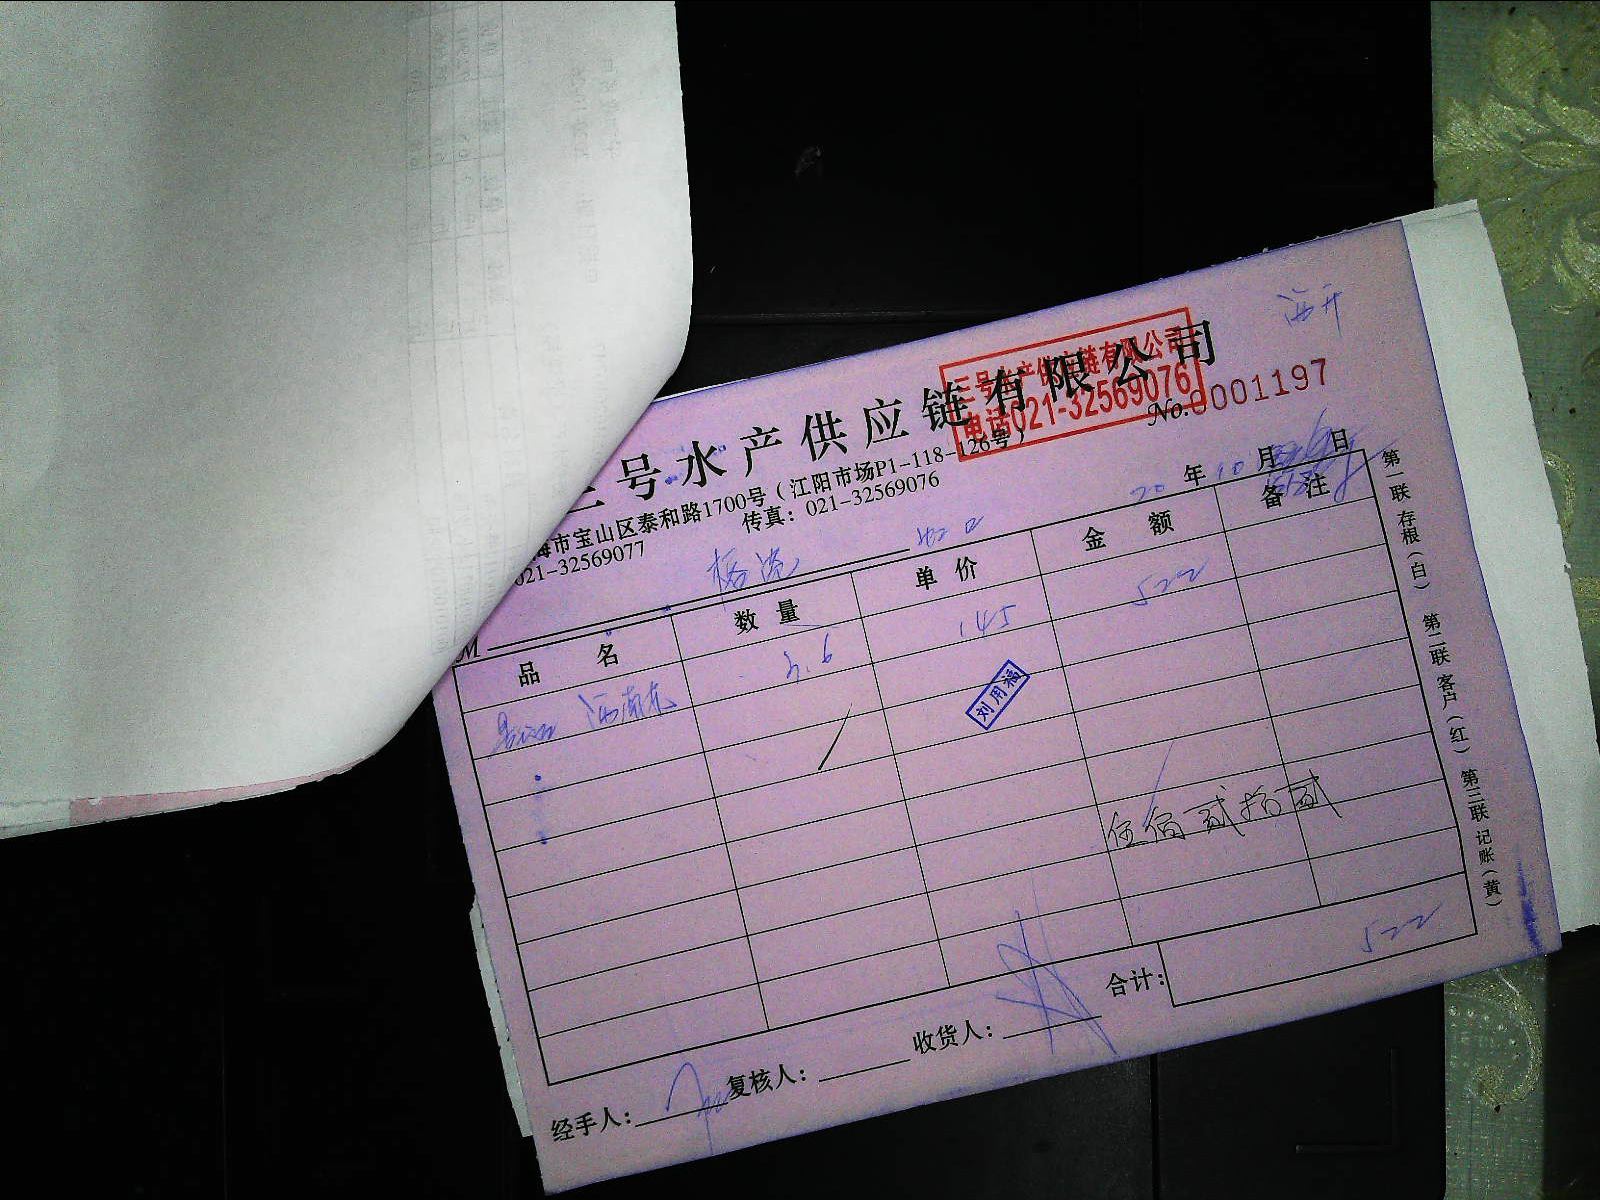 三号水产供应链有限公司
三号水产供应链有限公司
电话021-32569076
No.0001197
海市宝山区泰和路1700号（江阳市场P1-118-126号）
021-32569077 传真：021-32569076
20 年 10 月 日
M
品名 数量 单价 金额 备注
3.6 145 522
刘用福
伍佰贰拾贰
合计： 522
经手人： 复核人： 收货人：
第一联存根（白） 第二联客户（红） 第三联记账（黄）